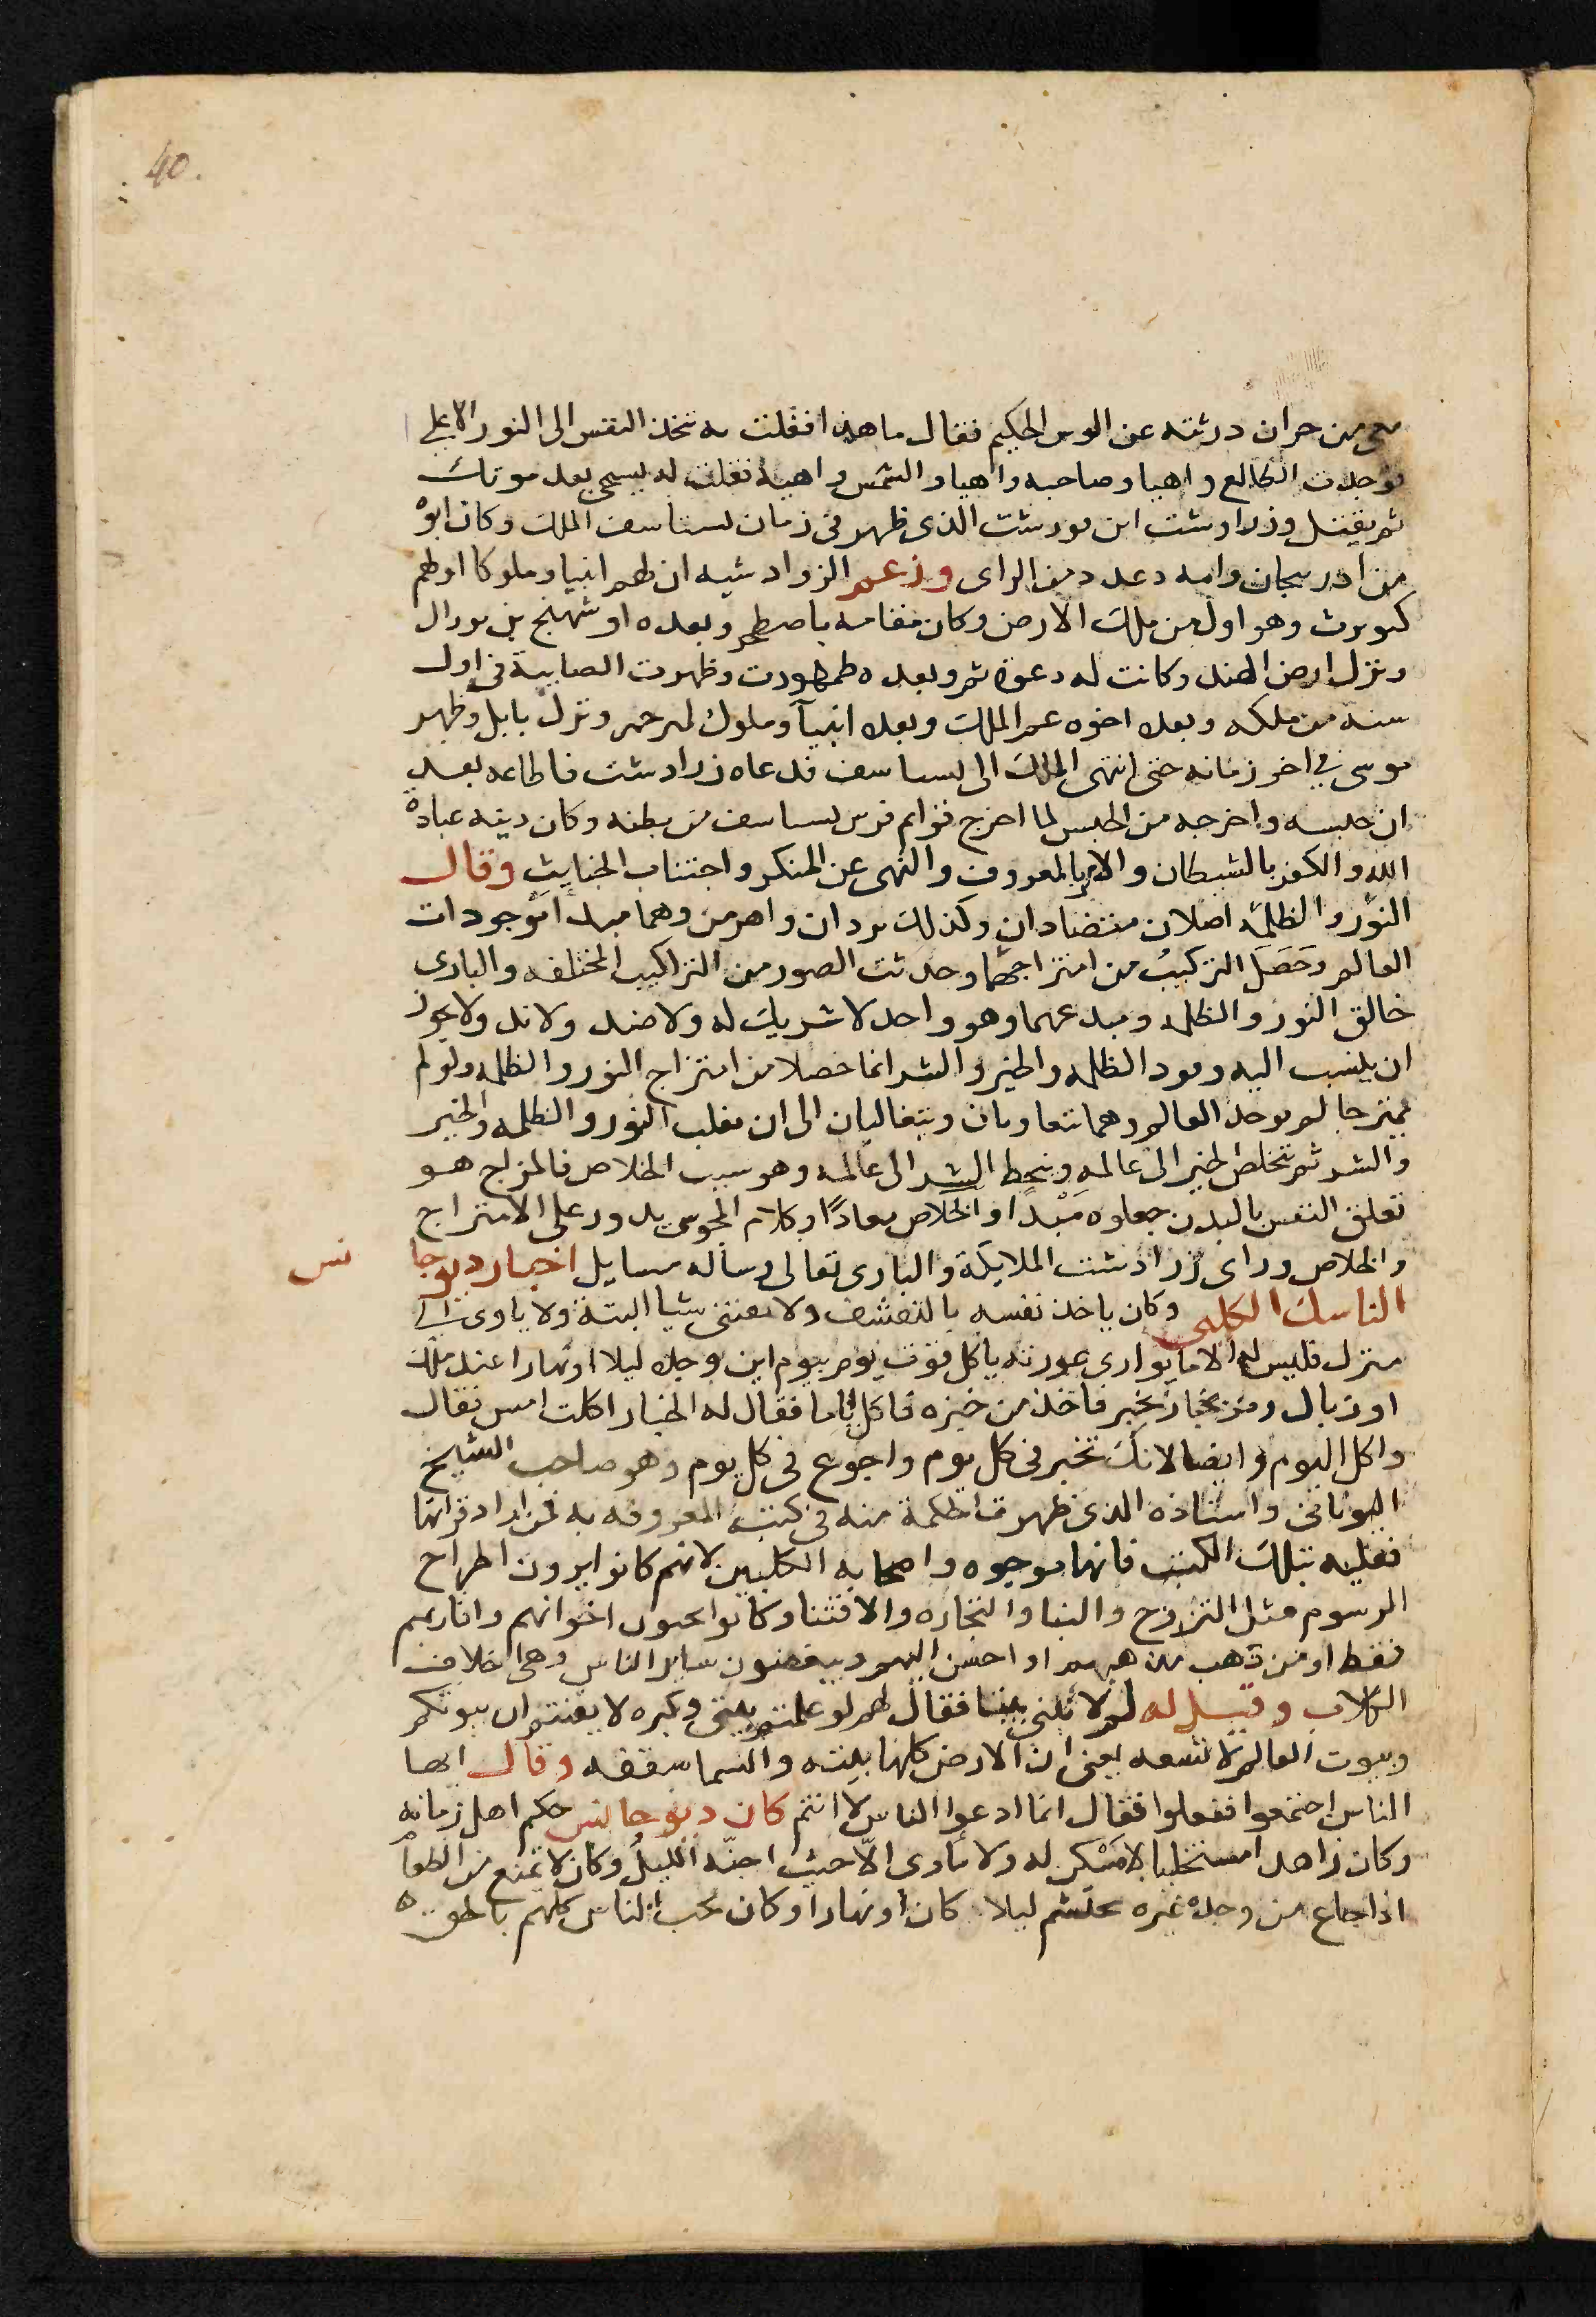 40.
معى من حران درثته عن الوس الحكيم فقال ما هذا فقلت به تتخذ النفس الى النور الاعلى
فوجدت الكالع واهيا وصاحبه واهيا والشمس واهية فقلت له يسجى بعد موتك
ثم يقتل وزرادشت ابن بورشت الذى ظهر فى زمان لستاسف الملك وكان ابوه
من ادربيجان وامه دغد من الراى وزعم الزرادشيه ان لهم انبيا وملوكا اولهم
كيومرث وهو اول من ملك الارض وكان مقامه باصطخر وبعده اوشهنج بن بورال
ونزل ارض الهند وكانت له دعوة ثم وبعده طمهورت وظهرت الصابية فى اول
سنة من ملكه وبعده اخوه عمر الملك وبعده انبيآ وملوك لمرحمر ونزل بابل وظهر
موسى في اخر زمانه حتى انتهى الملك الى لسساسف فدعاه زرادشت فاطاعه بعد
ان حبسه واخرجه من الحبس لما اخرج قوايم فرس لسساسف من بطنه وكان دينه عبادة
الله والكفر بالشيطان والامر بالمعروف والنهى عن المنكر واجتناب الخبايث وقال
النور والظلمه اصلان متضادان وكذلك يردان واهرمن وهما مبدا موجودات
العالم وحَصَلَ التركيبُ من امتزاجهما وحدثت الصور من التراكيب المختلفه والبارى
خالق النور والظلمه ومبدعهما وهو واحد لا شريك له ولا ضد ولا ند ولا يجوز
ان ينسب اليه وجود الظلمه والخير والشر انما حصلا من امتزاج النور والظلمه ولو لم
يمتزجا لم يوجد العالم وهما يتعاومان ويتغالبان الى ان يغلب النور والظلمه والخير
والشر ثم يتخلص الخير الى عالمه وينحط الشر الى عالمه وهو سبب الخلاص فالمزاج هو
تعلق النفس بالبدن جعلوه مَبْدًا والخلاص معادًا وكلام المجوس يدور على الامتزاج
والخلاص وراى زرادشت الملايكة والبارى تعالى وساله مسايل اخبار ديوجا نس
الناسك الكلبى وكان ياخذ نفسه بالتقشف ولا يقتنى شيا البتة ولا ياوى الى
منزل فليس له الا ما يوارى عورته ياكل قوت يوم بيوم اين وجده ليلا او نهارا عند ملك
او زبال ومر بخباز يخبز فاخذ من خبزه فاكل فقال له الخباز اكلت امس فقال
واكل اليوم وايضا لانك تخبز فى كل يوم واجوع فى كل يوم وهو صاحب الشيخ
اليونانى واستاذه الذى ظهرت الحكمة منه فى كتبه المعروفه به فمن اراد قراتها
فعليه بتلك الكتب فانها موجوه واصحابه الكلبيين لانهم كانوا يرون اطراح
الرسوم مثل التزوج والبنا والتجاره والاقتنا وكانوا يحبون اخوانهم واقاربهم
فقط او من ذهب مذهبهم او احسن اليهم ويبغضون ساير الناس وهى اخلاف
الكلاب وقيل له لم لا تبنى بيتا فقال لهم لو علمتم بيتى وكبره لايقنتم ان بيوتكم
وبيوت العالم لا تسعه يعنى ان الارض كلها بيته والسما سقفه وقال ايها
الناس اجتمعوا ففعلوا فقال انما ادعوا الناس لا انتم كان ديوجانس حكم اهل زمانه
وكان زاهدا متخليا لا مَسْكن له ولا ياوى الّا حيث اجنّه الليلُ وكان لا يمتنع من الطعآ
اذا جاع من وجده غيره محتشم ليلا كان او نهارا وكان يحب الناس كلهم بالحق